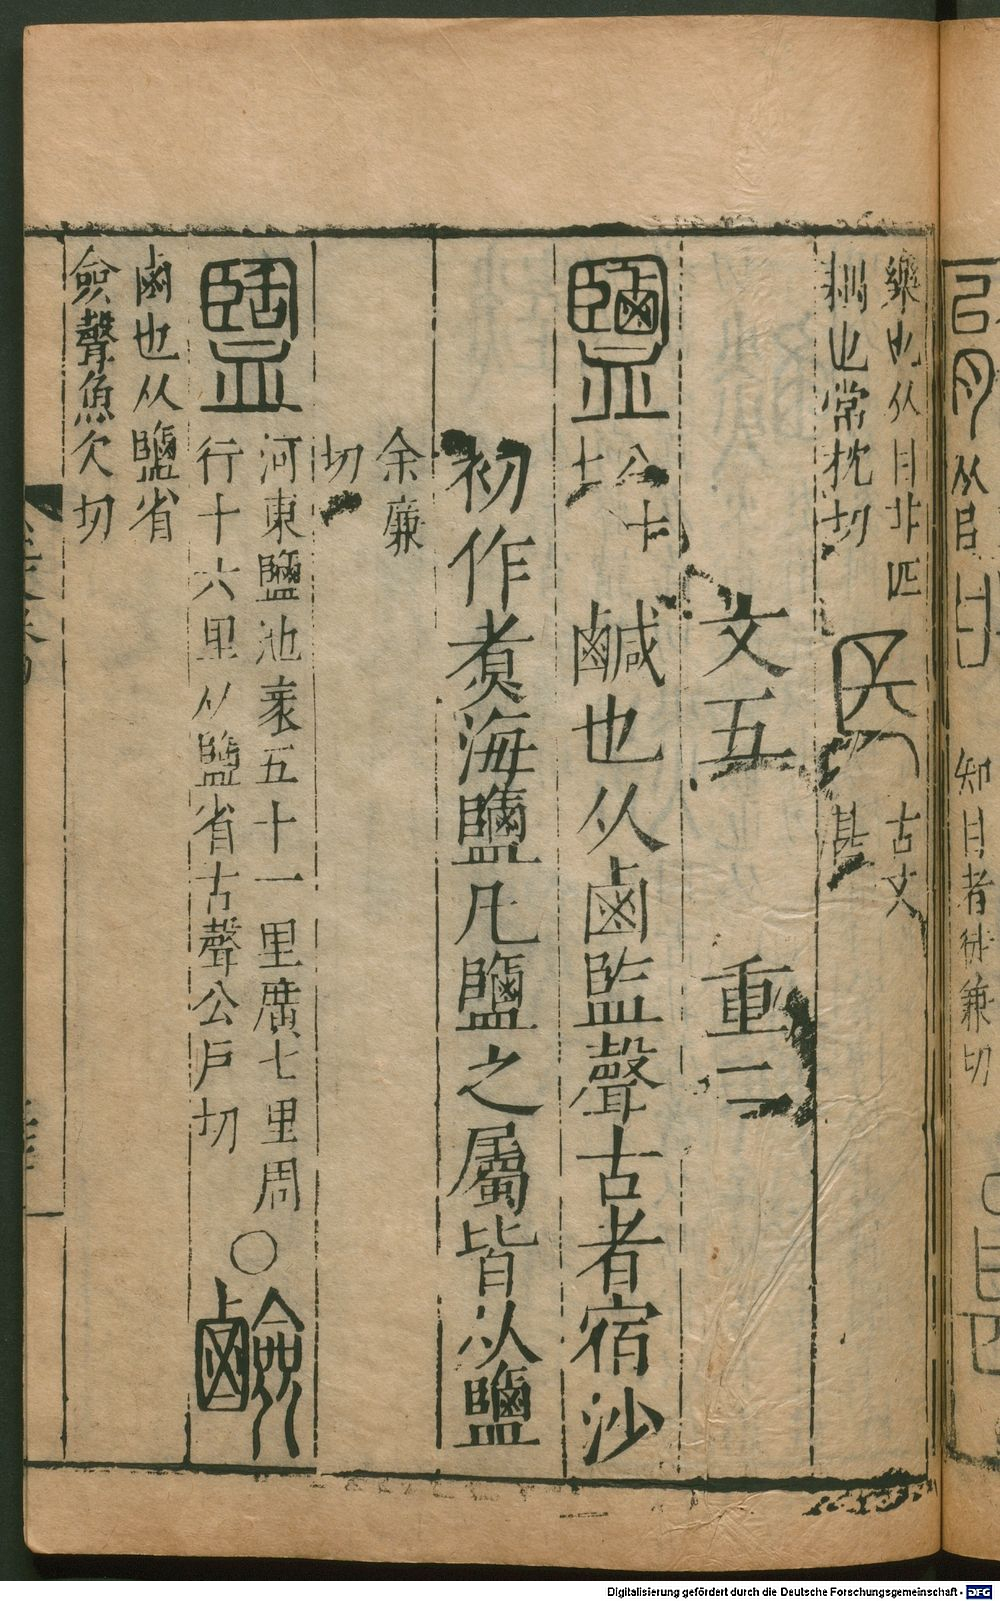 知甘者徒兼切
樂也从甘甘匹
耦也常枕切
古文
甚
文五　重二
鹽
鹹也从鹵監聲古者宿沙
初作煑海鹽凡鹽之屬皆从鹽
余廉
切
盬
河東鹽池袤五十一里廣七里周
行十六里从鹽省古聲公戶切
○鹼
鹵也从鹽省
僉聲魚欠切
Digitalisierung gefördert durch die Deutsche Forschungsgemeinschaft - DFG